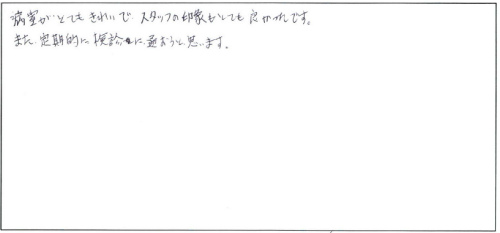 病室がとてもきれいで、スタッフの印象もとても良かったです。
また、定期的に検診に通おうと思います。